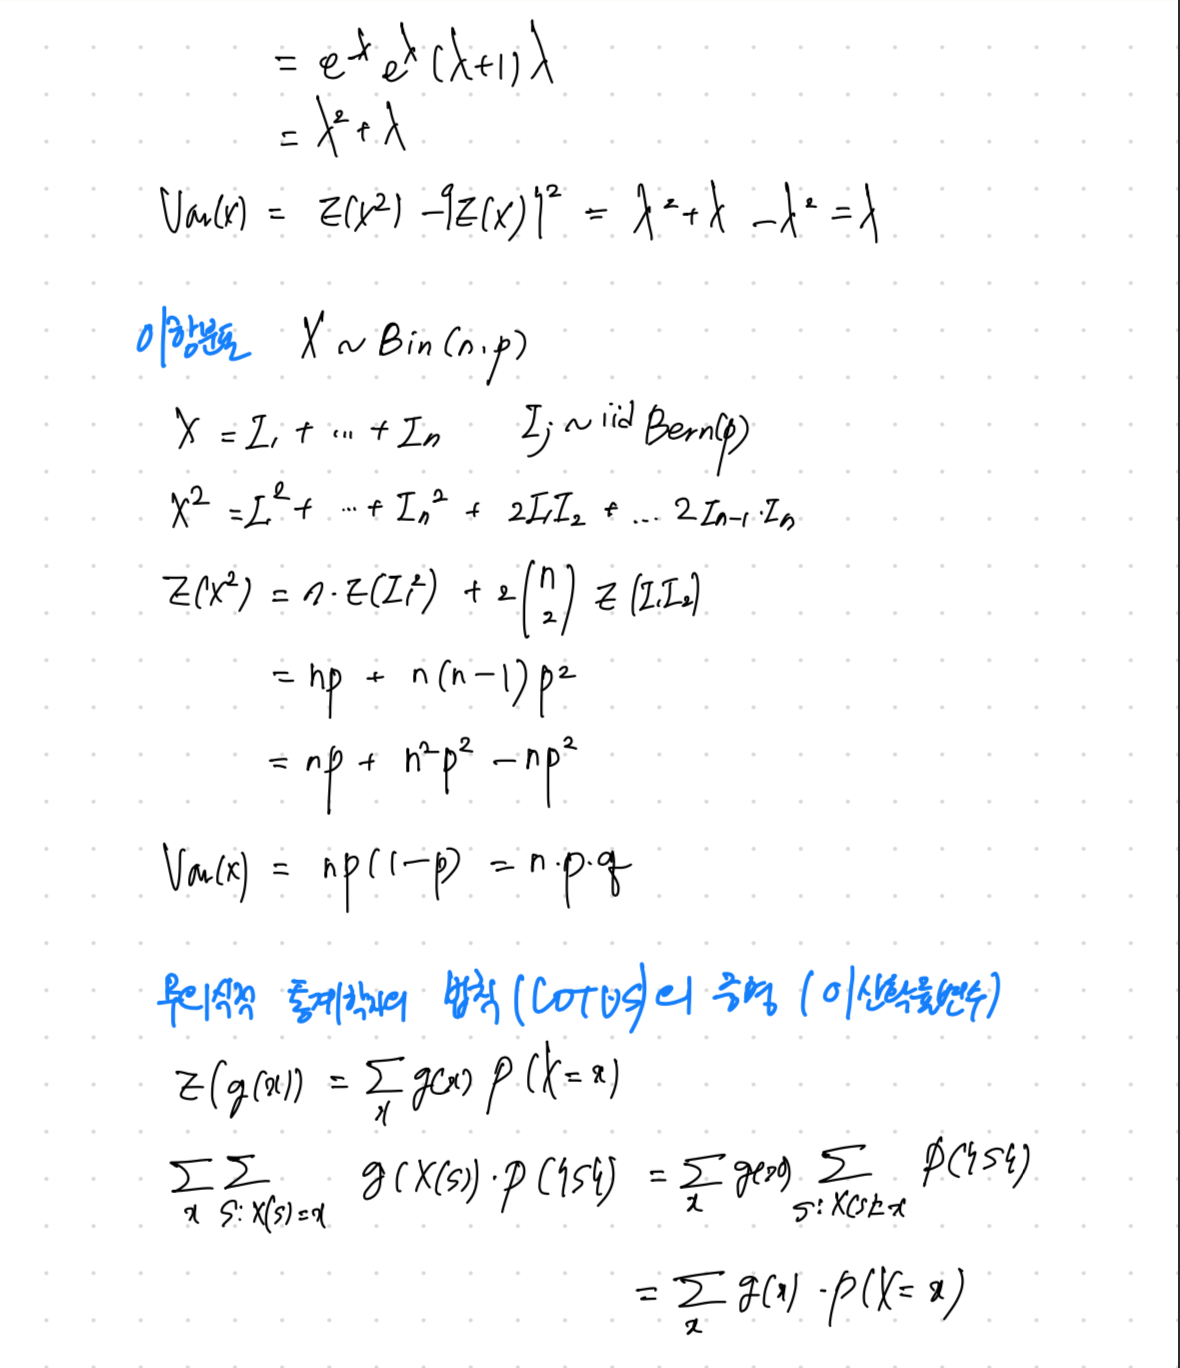 = e^λ e^λ (λ+1) λ
= λ² + λ
Var(X) = E(X²) - {E(X)}² = λ² + λ - λ² = λ
이항분포 X ~ Bin(n, p)
X = I₁ + ... + Iₙ Iⱼ ~ iid Bern(p)
X² = I₁² + ... + Iₙ² + 2I₁I₂ + ... 2Iₙ₋₁·Iₙ
E(X²) = n·E(I₁²) + 2(n 2) E(I₁I₂)
= np + n(n-1)p²
= np + n²p² - np²
Var(X) = np(1-p) = n·p·q
무의식적 통계학자의 법칙 (LOTUS)의 증명 (이산확률변수)
E(g(x)) = Σₓ g(x) P(X=x)
Σₓ Σ s:X(s)=x g(X(s))·P({s}) = Σₓ g(x) Σ s:X(s)=x P({s})
= Σₓ g(x)·P(X=x)